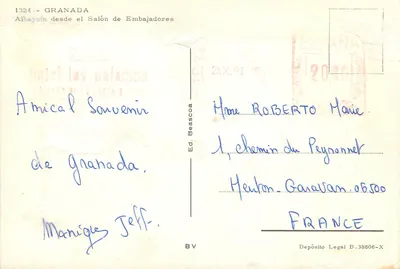 1324.- GRANADA
Albayzín desde el Salón de Embajadores
Amical Souvenir
de Granada.
Monique Jeff.
Ed. Beascoa
BV
Mme ROBERTO Marie
1, chemin du Peyronnet
Menton-Garavan 06500
FRANCE
Depósito Legal B. 38806-X